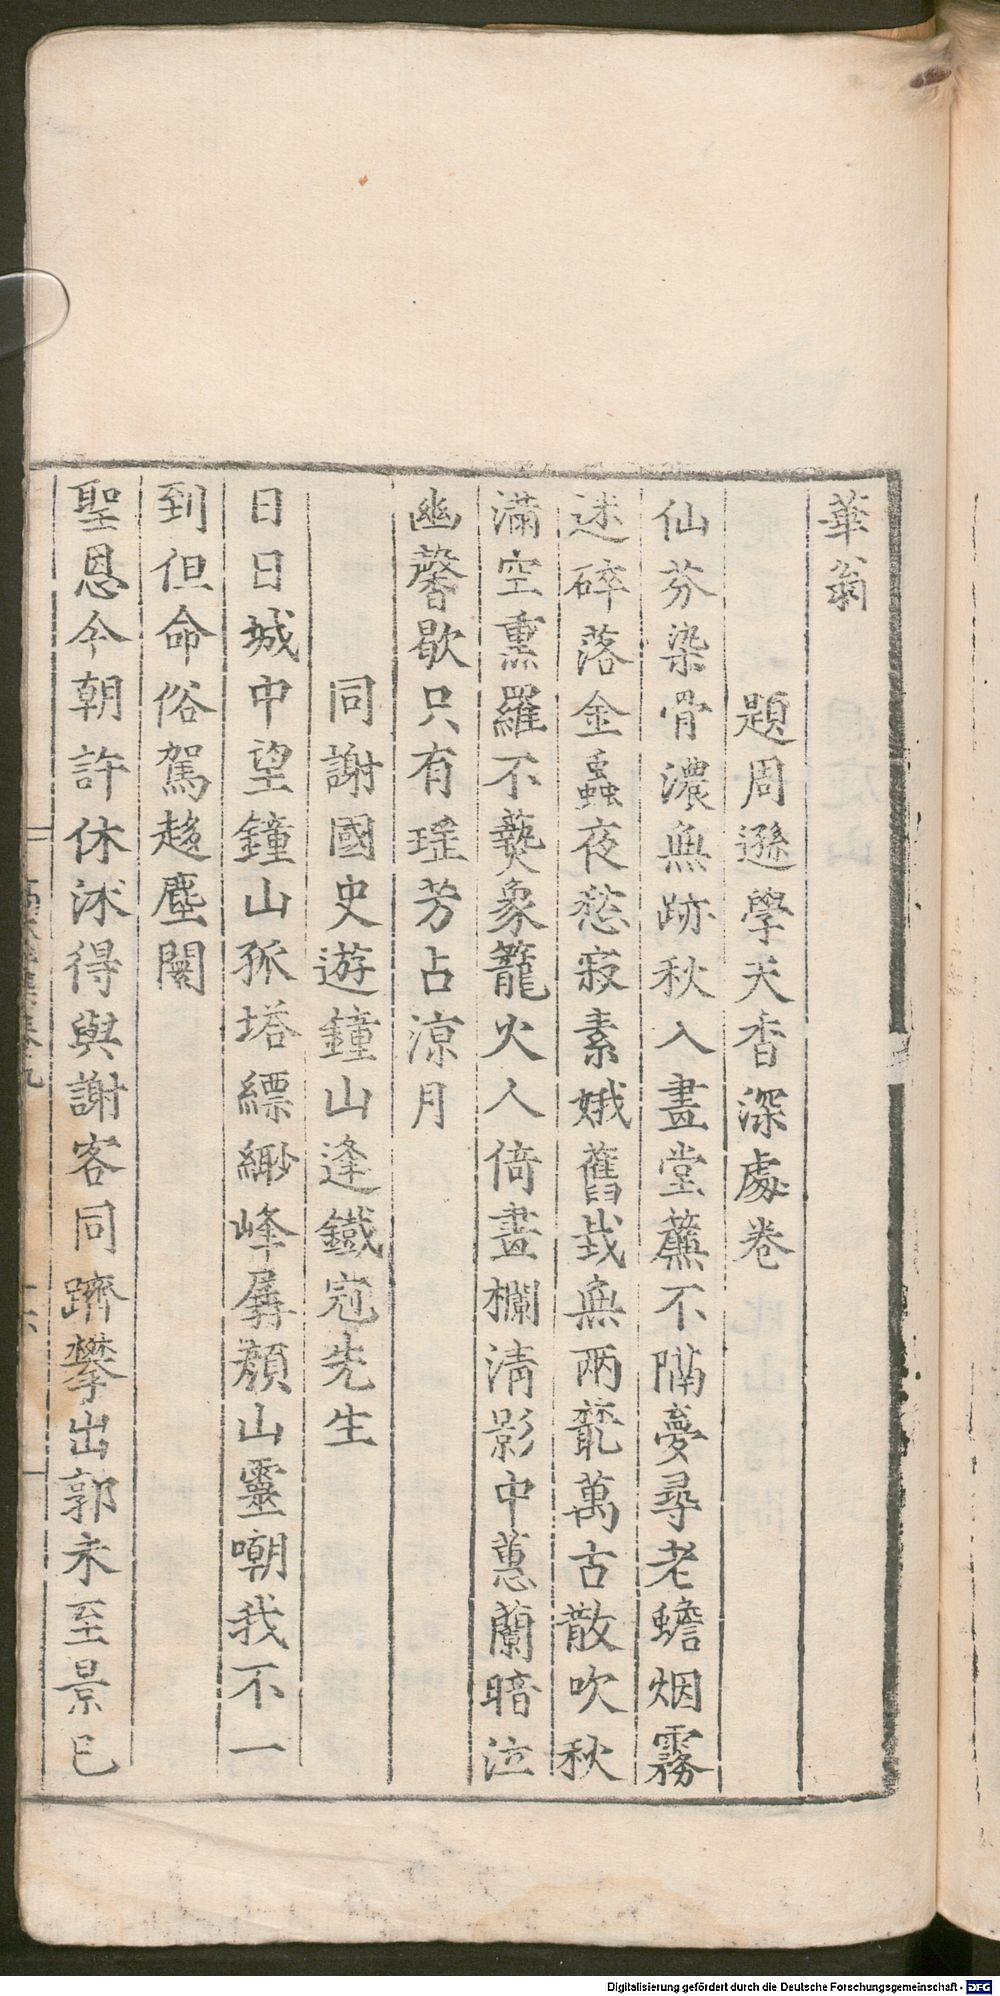 華翁
題周遜學天香深處卷
仙芬染骨濃無跡秋入畫堂薰不隔夢尋老蟾烟霧
迷碎落金蟲夜愁寂素娥舊哉無兩麓萬古散吹秋
滿空熏羅不爇象籠火人倚畫欄淸影中蕙蘭暗泣
幽馨歇只有瑤芳占涼月
同謝國史遊鐘山逢鐵冠先生
日日城中望鐘山孤塔縹緲峰孱顔山靈嘲我不一
到但命俗駕趨塵闤
聖恩今朝許休沐得與謝客同躋攀出郭未至景已
高太 集卷九
十六
Digitalisierung gefördert durch die Deutsche Forschungsgemeinschaft - DFG